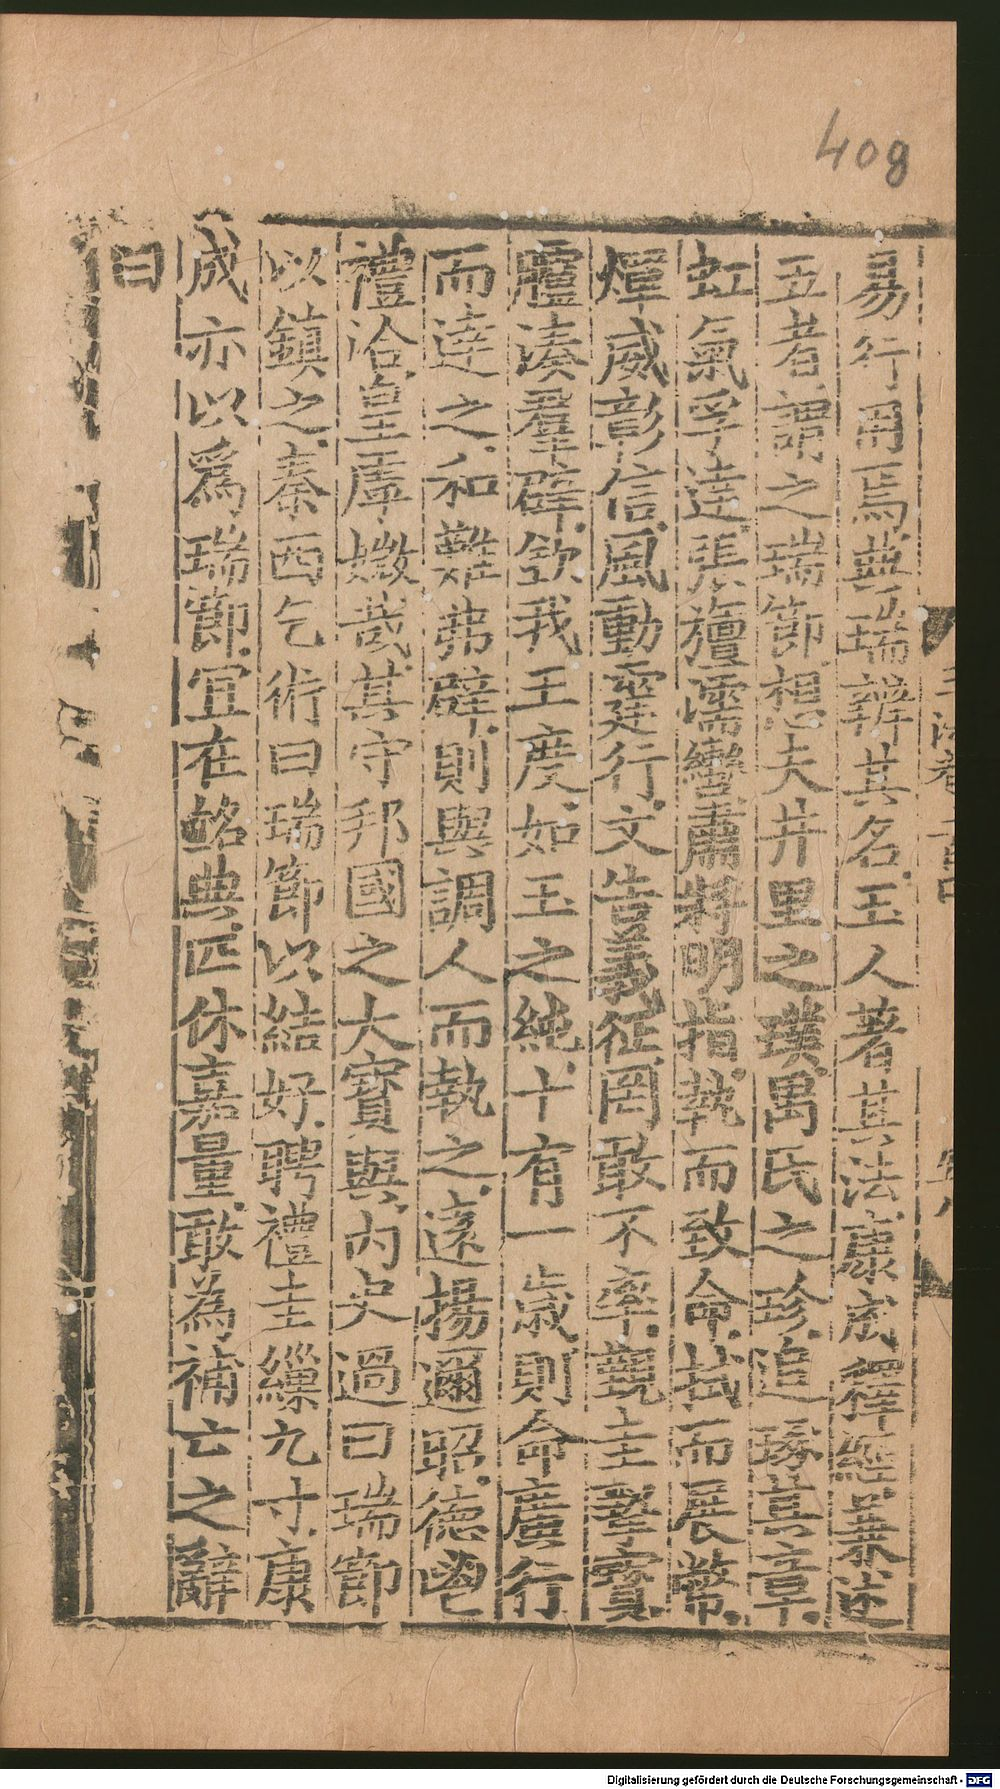 408
易行用焉典瑞辨其名玉人著其法康成釋經纂述
五者謂之瑞節想夫井里之璞禺氏之珍追琢其章
虹氣孚達張旜濡轡肅將明指執而致命拭而展幣
煇威彰信風動霆行文告義征罔敢不率覲圭摯寳
廱湊羣辟欽我王度如玉之純十有一歲則命廣行
而達之和難弗辟則與調人而執之遠揚邇昭德鬯
禮洽皇虖媺哉其守邦國之大寳與內史過曰瑞節
以鎮之秦西乞術曰瑞節以結好聘禮圭繅九寸康
成亦以爲瑞節宜在銘典匹休嘉量敢為補亡之辭
曰
Digitalisierung gefördert durch die Deutsche Forschungsgemeinschaft - DFG